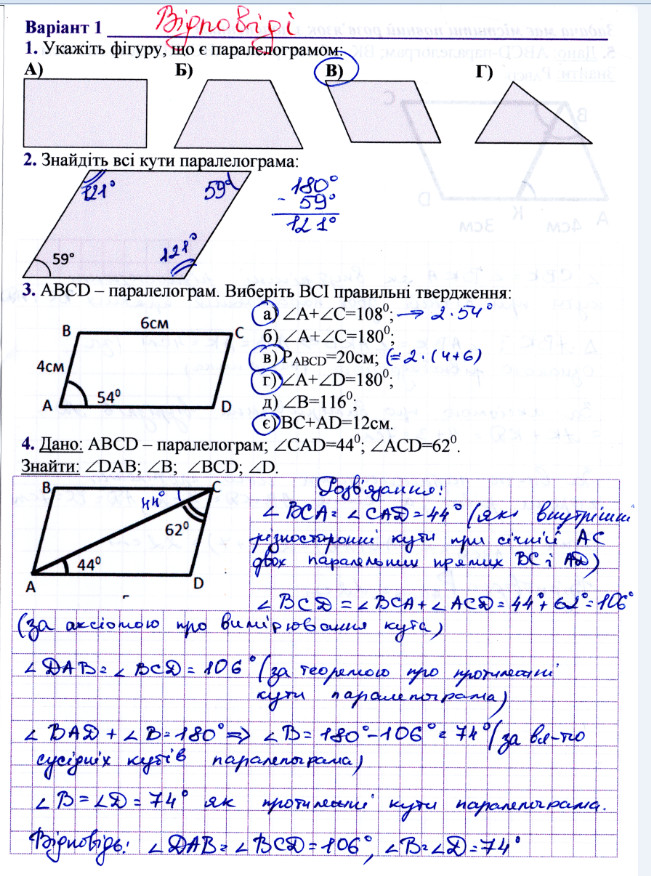 Варіант 1 Відповіді
1. Укажіть фігуру, що є паралелограмом:
А) Б) В) Г)
2. Знайдіть всі кути паралелограма:
121° 59°
59° 121°
180°
- 59°
121°
3. ABCD – паралелограм. Виберіть ВСІ правильні твердження:
а) ∠A+∠C=108⁰; → 2·54°
б) ∠A+∠C=180⁰;
в) P_ABCD=20см; (=2·(4+6)
г) ∠A+∠D=180⁰;
д) ∠B=116⁰;
є) BC+AD=12см.
B 6см C
4см
A 54⁰ D
4. Дано: ABCD – паралелограм; ∠CAD=44⁰; ∠ACD=62⁰.
Знайти: ∠DAB; ∠B; ∠BCD; ∠D.
B 44° C
62⁰
44⁰
A D
Розв'язання:
∠BCA=∠CAD=44° (як внутрішні
різносторонні кути при січній AC
двох паралельних прямих BC і AD)
∠BCD=∠BCA+∠ACD=44°+62°=106°
(за аксіомою про вимірювання кута)
∠DAB=∠BCD=106° (за теоремою про протилежні
кути паралелограма)
∠BAD+∠B=180°⇒∠B=180°-106°=74° (за вл-тю
сусідніх кутів паралелограма)
∠B=∠D=74° як протилежні кути паралелограма.
Відповідь: ∠DAB=∠BCD=106°, ∠B=∠D=74°